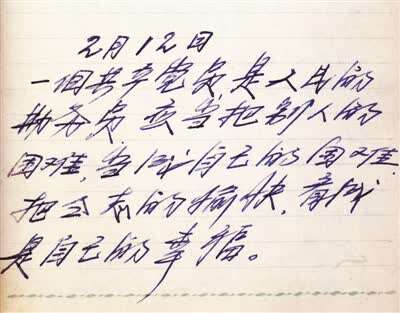 2月12日
一個共产党员,是人民的
勤务员,应当把别人的
困难,当成自己的困难.
把同志的愉快,看成
是自己的幸福。